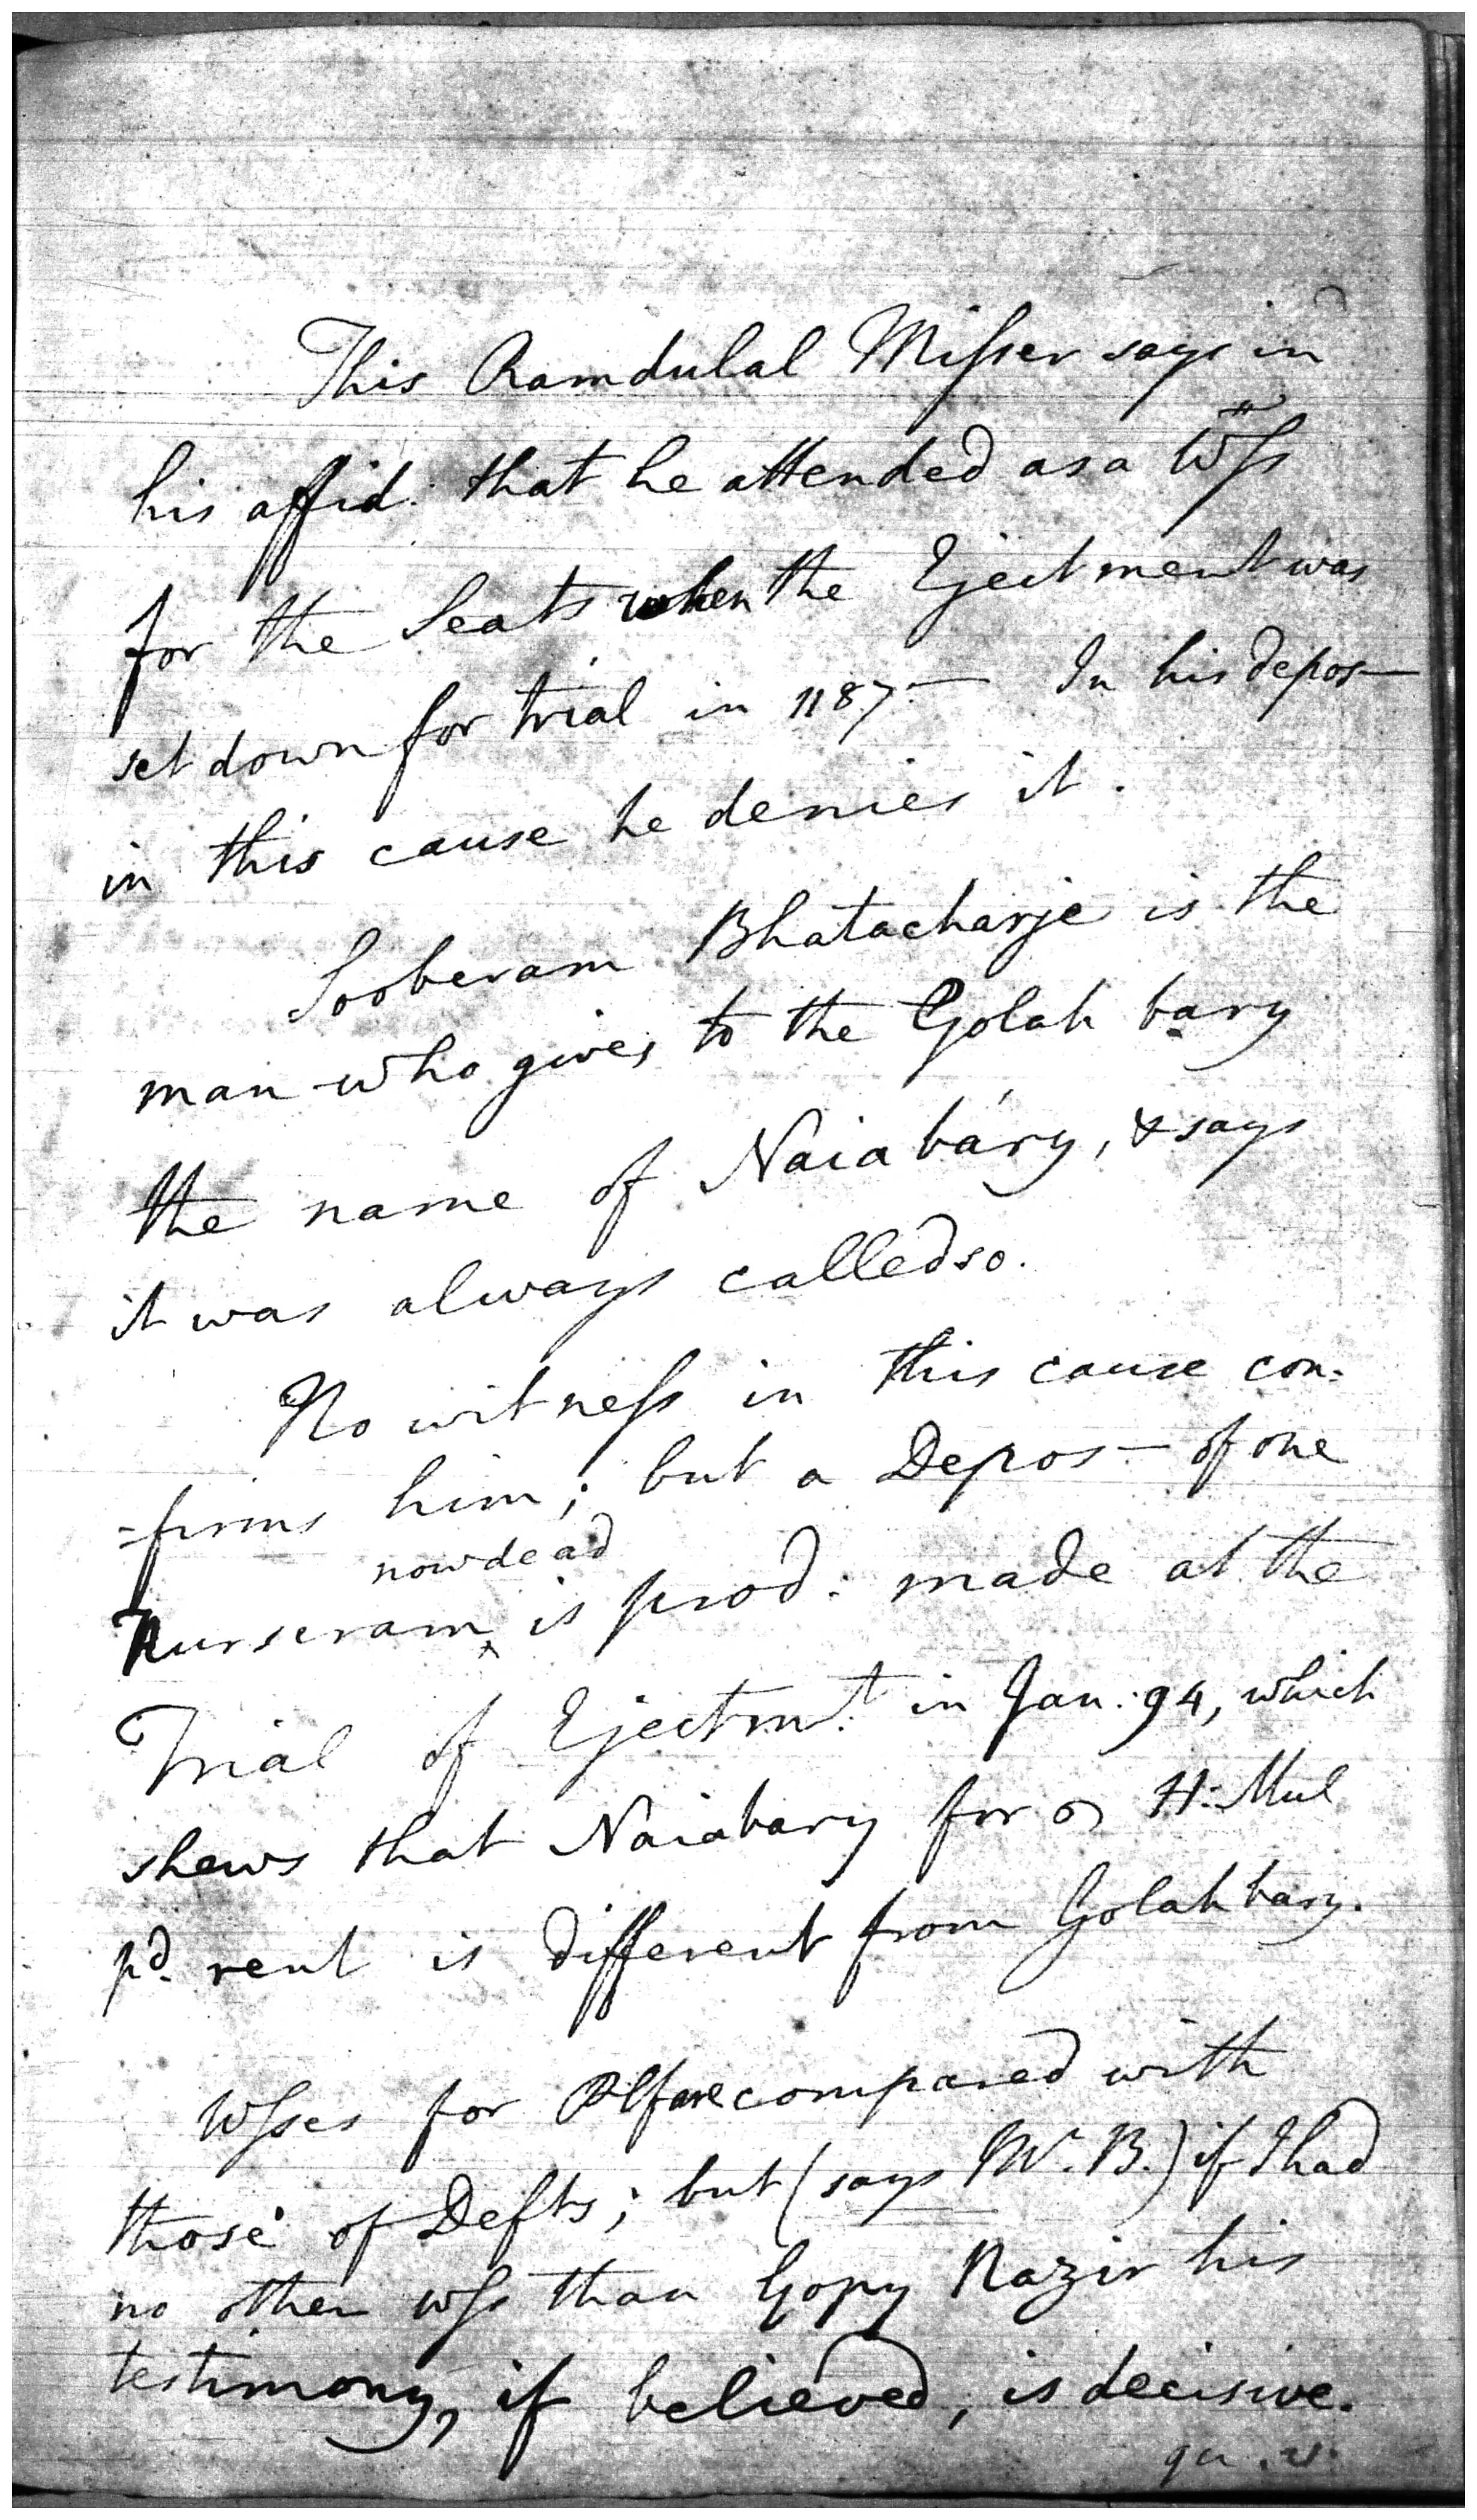 This Ramdulal Misser says in
his affid: that he attended as a Wss
for the Seats when the Ejectment was
set down for trial in 1187.— In his depos—
in this cause he denies it.
Sooberam Bhatacharje is the
man who gives to the Golah bary
the name of Naiabáry, & says
it was always called so.
No witness in this cause con-
-firms him; but a Depos— of one
now dead
Nurseram ^ is prod: made at the
Trial of Ejectmt. in Jan: 94, which
shews that Naiabary for H: Mul
pd. rent is different from Golahbary.
Wsses for compared with
those of Defts; but (says Mr. B.) if I had
no other wss than Gopy Nazir his
testimony, if believed, is decisive.